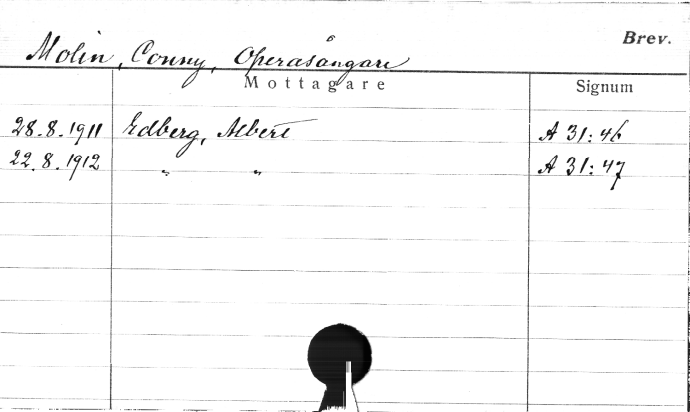 Brev.
Molin, Conny, Operasångare
Mottagare Signum
28.8.1911 Edberg, Albert A 31:46
22.8.1912 " " A 31:47